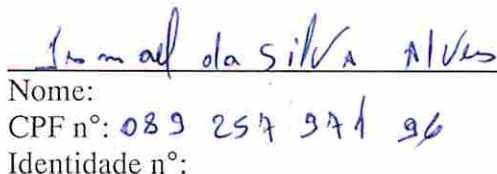 Ismael da Silva Alves
Nome:
CPF n°: 089 257 971 96
Identidade n°: